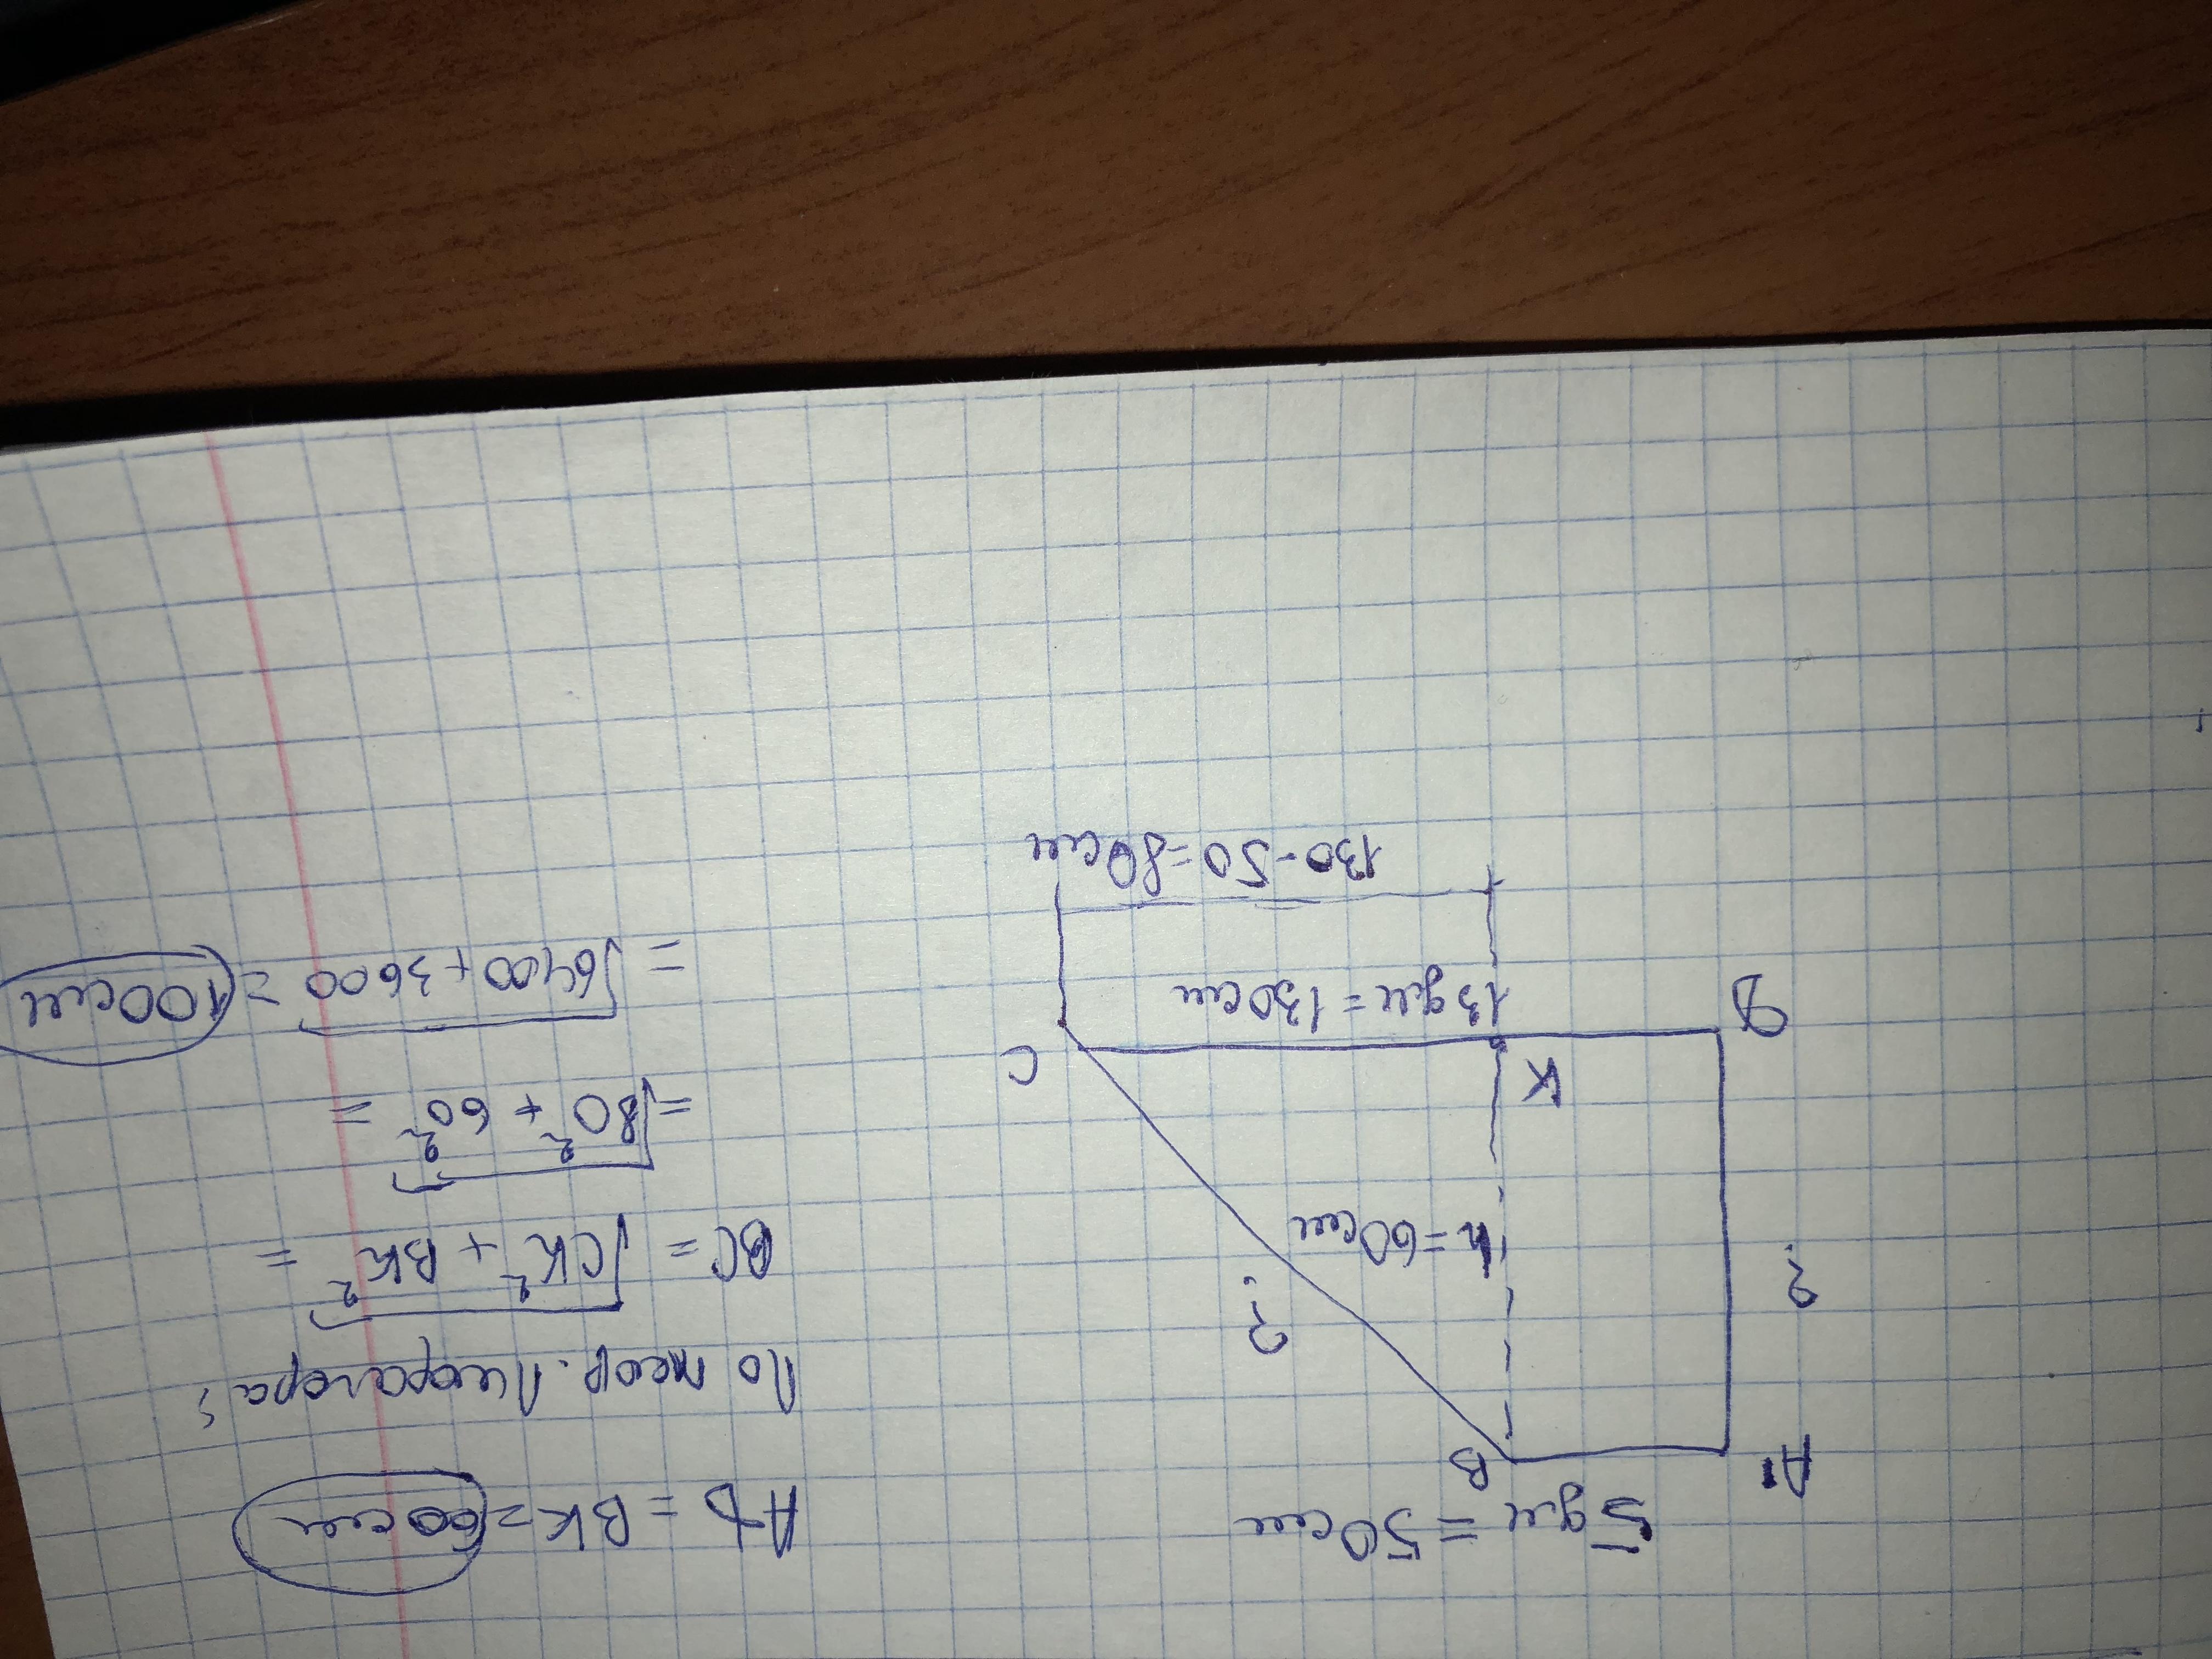 5дм = 50см
A
B
?
?
h=60см
K
C
D
13дм = 130см
130-50=80см
AD = BK = 60см
По теор. Пифагора:
BC = √CK² + BK² =
= √80² + 60² =
= √6400+3600 = 100см